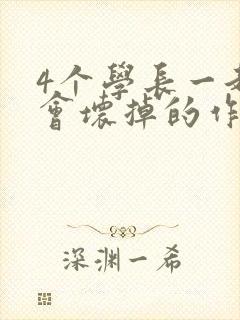 4个學長一
會壞掉的作
深渊一希